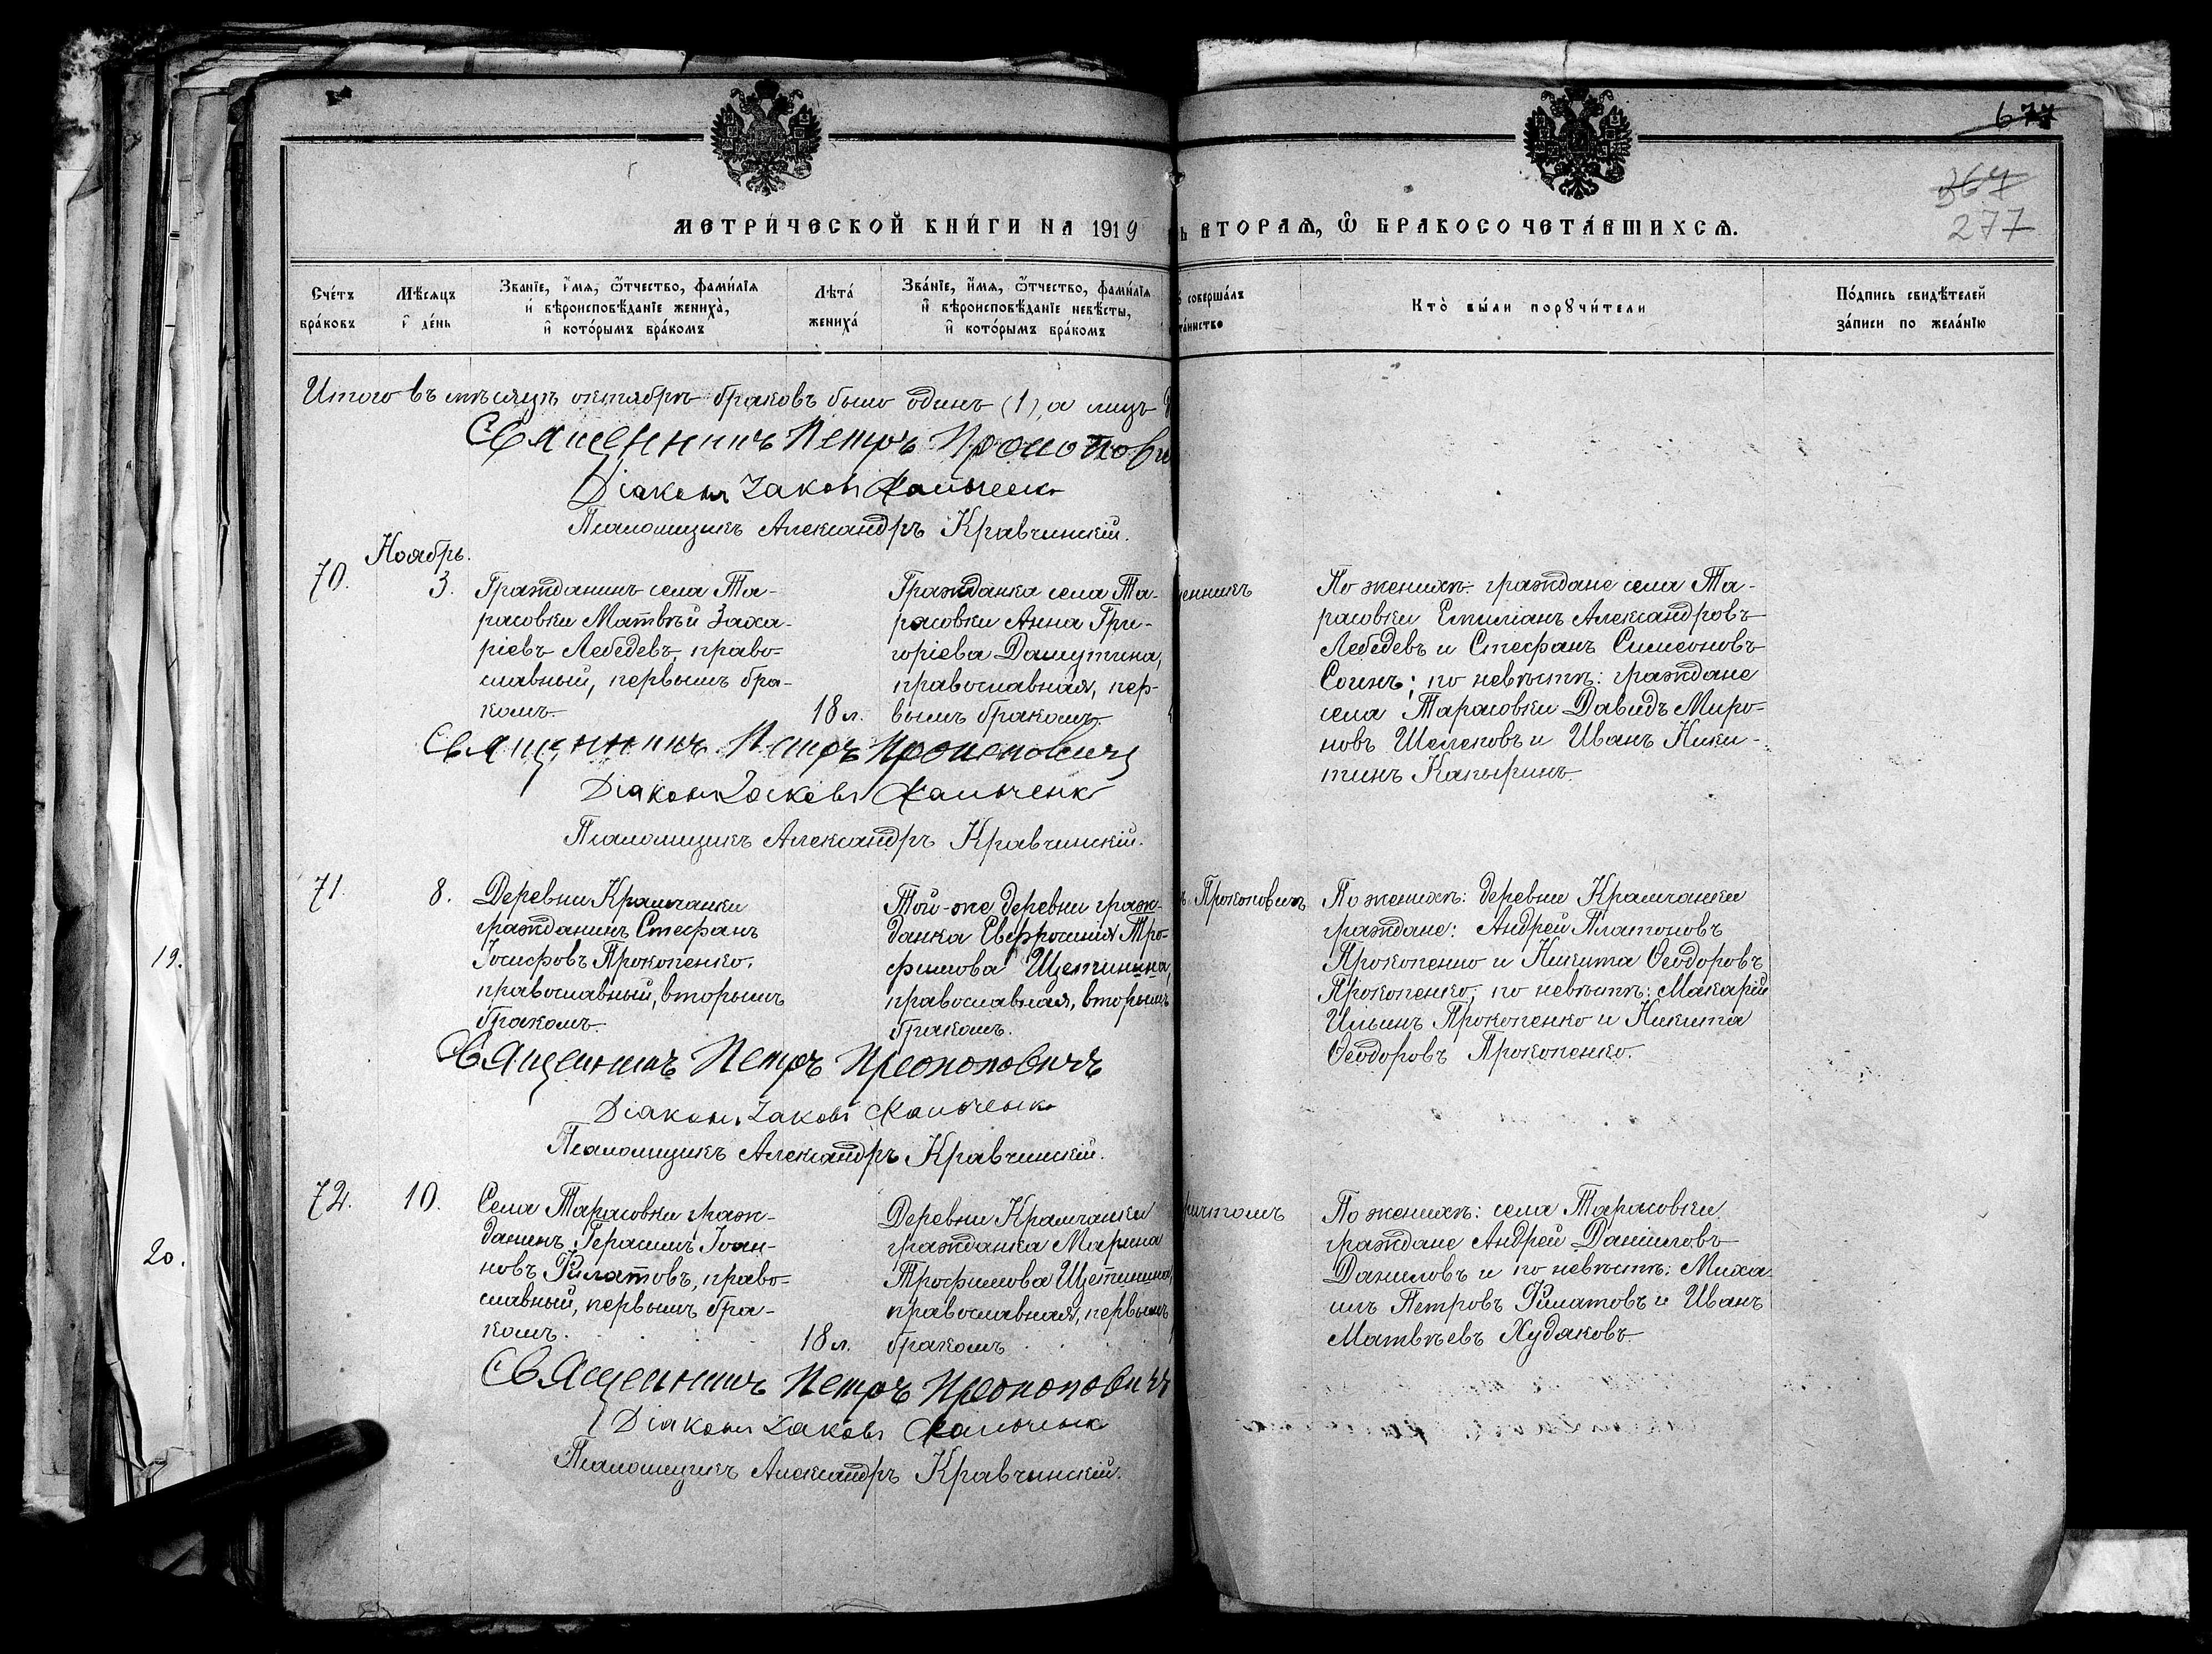 677
367
277
МЕТРИ́ЧЕСКОЙ КНИ́ГИ НА 1919
Ь ВТОРАѦ, Ѡ҆ БРАКОСОЧЕТА́ВШИХСѦ.
Сче́тъ бра́ковъ
Мѣ́сяцъ и҆ де́нь
Зва́нїе, и҆́мѧ, ѻ҆́тчество, фами́лїѧ и҆ вѣроисповѣ́данїе жениха̀, и҆ кото́рымъ бра́комъ
Лѣта́ жениха́
Зва́нїе, и҆́мѧ, ѻ҆́тчество, фами́лїѧ и҆ вѣроисповѣ́данїе невѣ́сты, и҆ кото́рымъ бра́комъ
соверша́лъ
та́инство
Кто̀ бы́ли порꙋчи́тели
По́дпись свидѣ́телей за́писи по жела́нїю
Итого въ мѣсяцѣ октябрѣ браковъ было одинъ (1), а лицъ
Священникъ Петръ Прокопови
Діаконъ Іаковъ
Псаломщикъ Александръ Кравчинскій.
Ноябрь.
70.
3.
Гражданинъ села Та-
расовки Матвѣй Заха-
ріевъ Лебедевъ, право-
славный, первымъ бра-
комъ.
18 л.
Гражданка села Та-
расовки Анна Гри-
горіева Дашутина,
православная, пер-
вымъ бракомъ.
енникъ
По женихѣ: граждане села Та-
расовки Емиліанъ Александровъ
Лебедевъ и Стефанъ Симеоновъ
Соинъ; по невѣстѣ: граждане
села Тарасовки Давидъ Миро-
новъ Шелеховъ и Иванъ Ники-
тинъ Капыринъ.
Священникъ Петръ Прокоповичъ
Діаконъ Іаковъ
Псаломщикъ Александръ Кравчинскій.
71.
8.
Деревни Крамчанки
гражданинъ Стефанъ
Іосифовъ Прокопенко,
православный, вторымъ
бракомъ.
Той-же деревни граж-
данка Евфросинія Тро-
фимова Щетинина,
православная, вторымъ
бракомъ.
ъ Прокоповичъ
По женихѣ: деревни Крамчанки
граждане: Андрей Платоновъ
Прокопенко и Никита Ѳеодоровъ
Прокопенко; по невѣстѣ: Макарій
Ильинъ Прокопенко и Никита
Ѳеодоровъ Прокопенко.
Священникъ Петръ Прокоповичъ
Діаконъ Іаковъ
Псаломщикъ Александръ Кравчинскій.
72.
10.
Села Тарасовки граж-
данинъ Герасимъ Іоан-
новъ Филатовъ, право-
славный, первымъ бра-
комъ.
18 л.
Деревни Крамчанки
гражданка Марина
Трофимова Щетинина,
православная, первымъ
бракомъ
ричтомъ
По женихѣ: села Тарасовки
граждане Андрей Даніиловъ
Даниловъ и по невѣстѣ: Миха-
илъ Петровъ Филатовъ и Иванъ
Матвѣевъ Худяковъ.
Священникъ Петръ Прокоповичъ
Діаконъ Іаковъ
Псаломщикъ Александръ Кравчинскій.
19.
20.